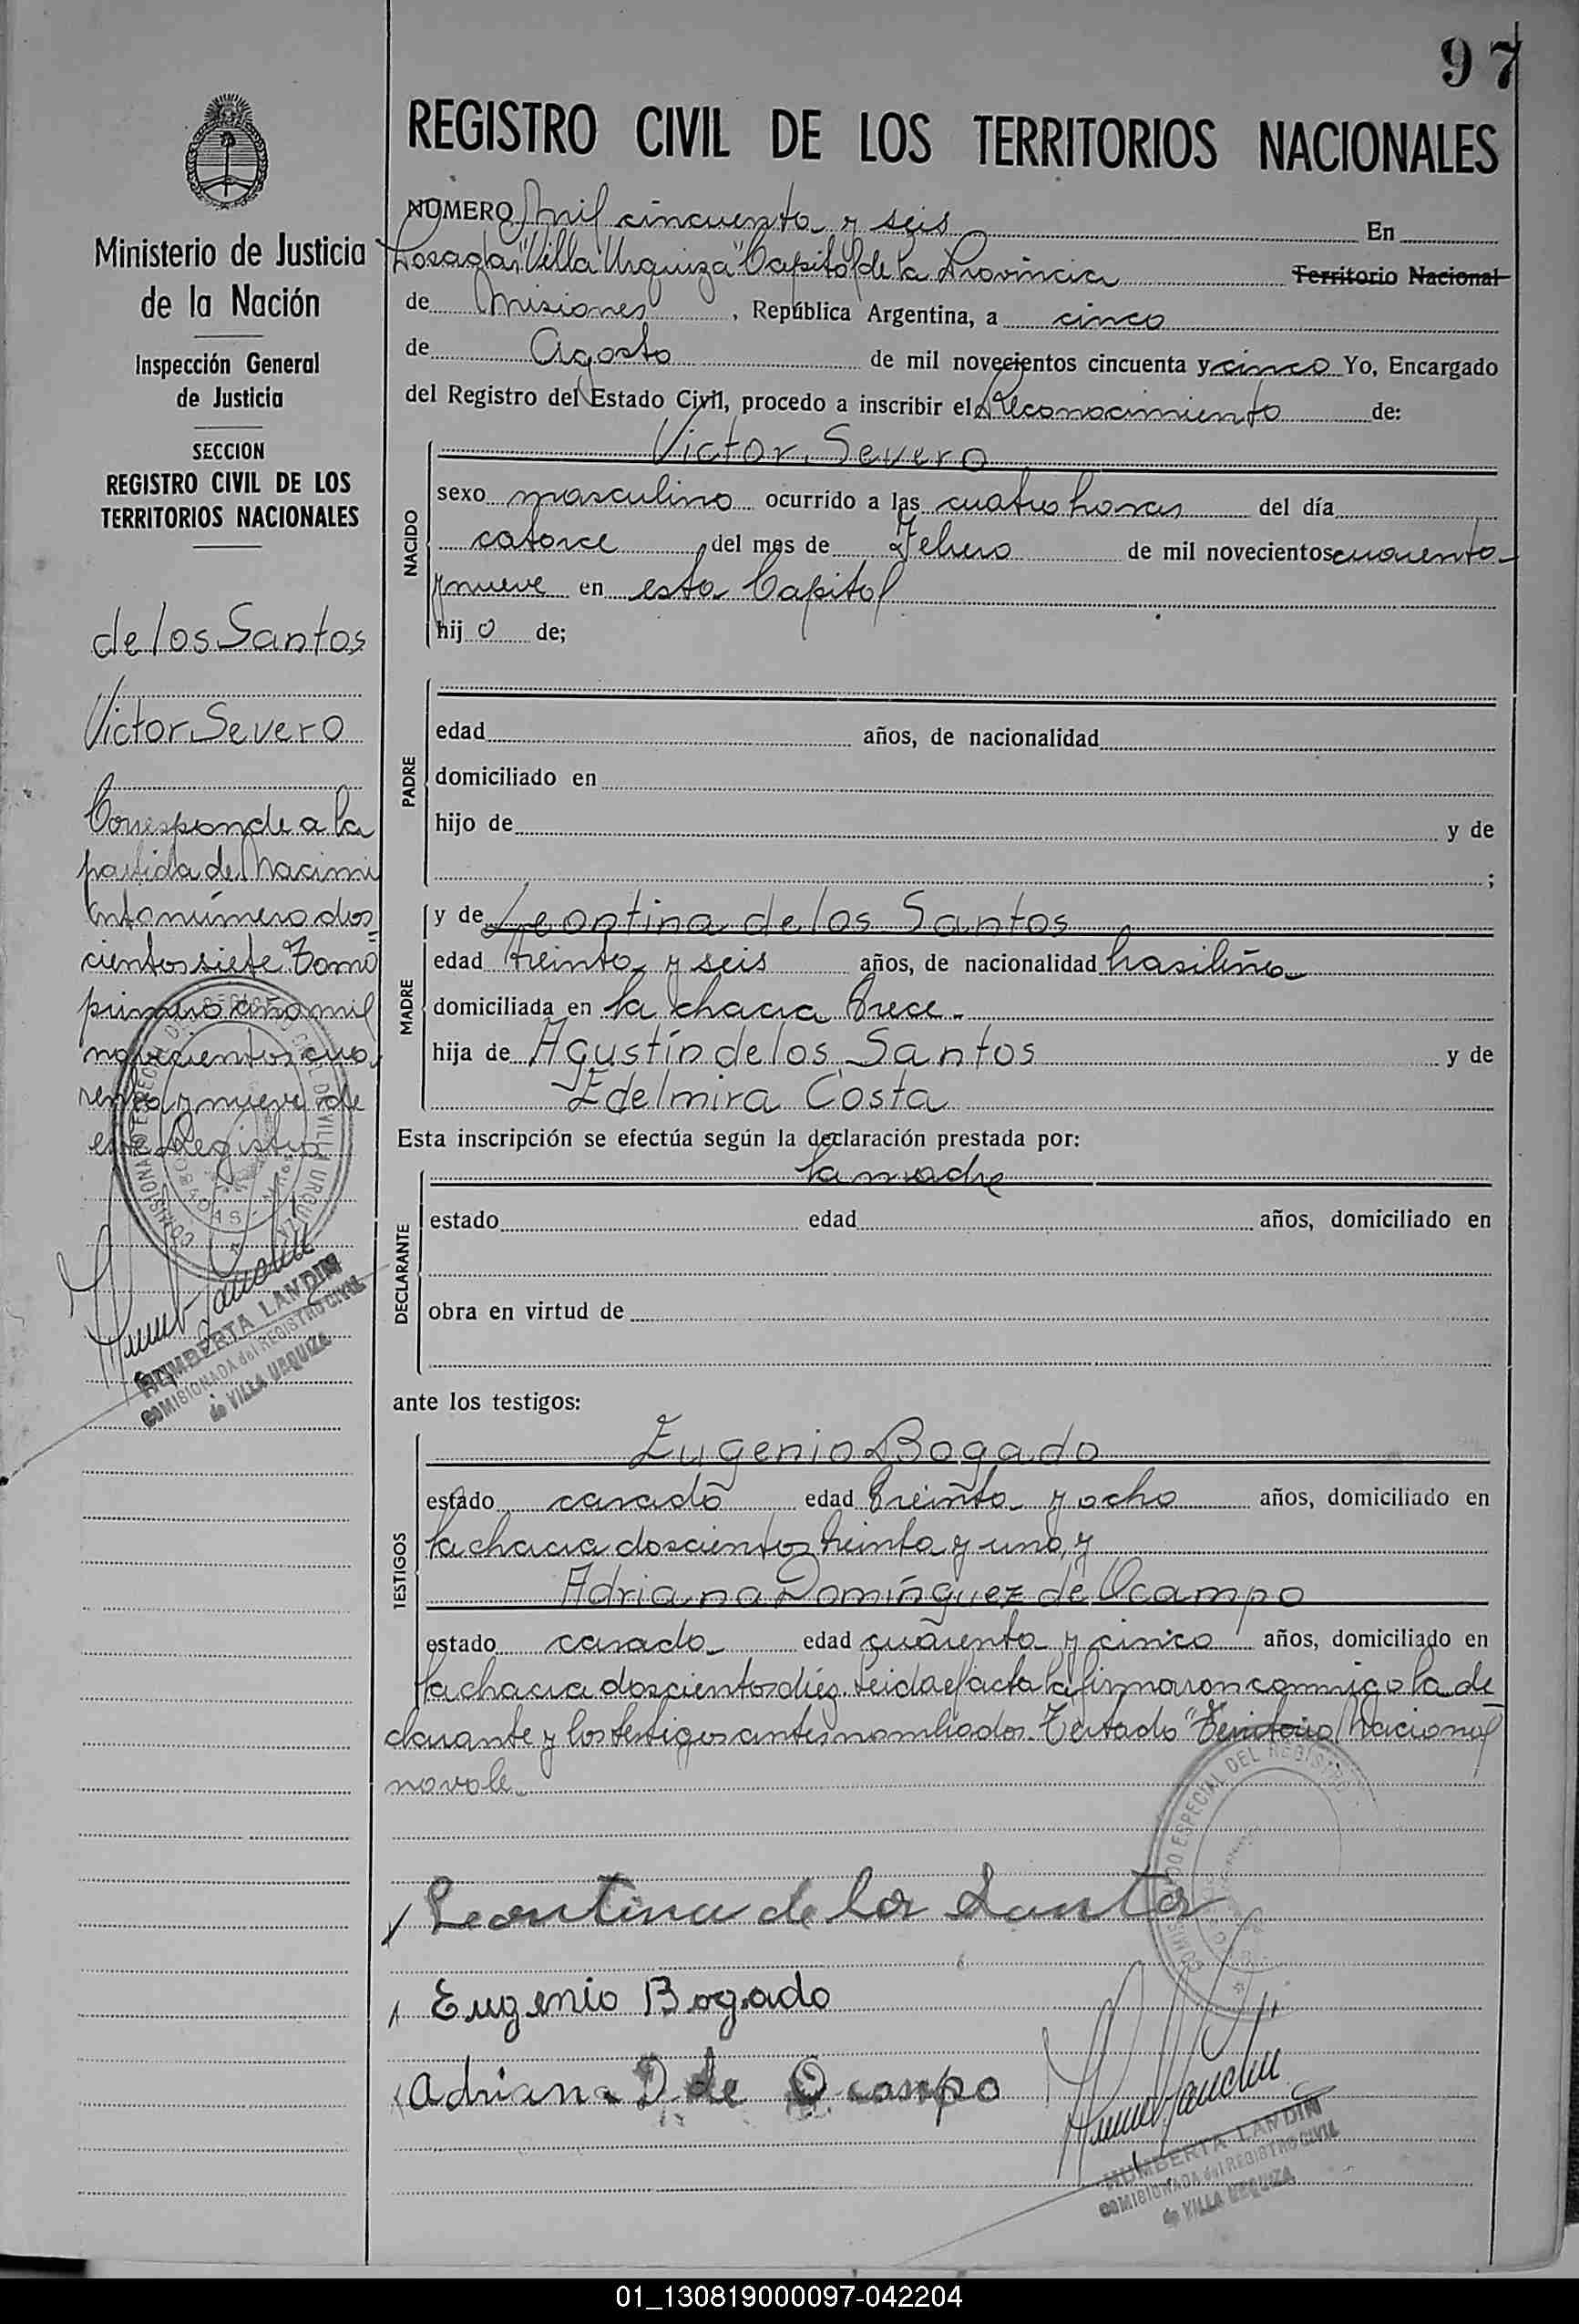 97
REGISTRO CIVIL DE LOS TERRITORIOS NACIONALES
NUMERO mil cincuenta y seis En
Posadas, "Villa Urquiza" Capital de la Provincia Territorio Nacional
de Misiones, República Argentina, a cinco
de Agosto de mil novecientos cincuenta y cinco Yo, Encargado
del Registro del Estado Civil, procedo a inscribir el Reconocimiento de:
NACIDO
Victor Severo
sexo masculino ocurrido a las cuatro horas del día
catorce del mes de Febrero de mil novecientos cuarenta
y nueve en esta Capital
hijo de;
PADRE
edad años, de nacionalidad
domiciliado en
hijo de y de
;
MADRE
y de Leontina de los Santos
edad treinta y seis años, de nacionalidad brasileña
domiciliada en la chacra trece.
hija de Agustín de los Santos y de
Edelmira Costa
Esta inscripción se efectúa según la declaración prestada por:
DECLARANTE
la madre
estado edad años, domiciliado en
obra en virtud de
ante los testigos:
TESTIGOS
Eugenio Bogado
estado casado edad treinta y ocho años, domiciliado en
la chacra doscientos treinta y uno, y
Adriana Domínguez de Ocampo
estado casada edad cuarenta y cinco años, domiciliado en
la chacra doscientos diéz. Leida el acta la firmaron conmigo la de
clarante y los testigos antes nombrados. Testado "Territorio Nacional
no vale.
Leontina de los Santos
Eugenio Bogado
Adriana D de Ocampo
HUMBERTA LANDIN
COMISIONADA del REGISTRO CIVIL
de VILLA URQUIZA
Ministerio de Justicia
de la Nación
Inspección General
de Justicia
SECCION
REGISTRO CIVIL DE LOS
TERRITORIOS NACIONALES
de los Santos
Victor Severo
Corresponde a la
partida de Nacimi
ento número dos
cientos siete Tomo
primero año mil
novecientos cua
renta y nueve de
este Registro
HUMBERTA LANDIN
COMISIONADA del REGISTRO CIVIL
de VILLA URQUIZA
01_130819000097-042204